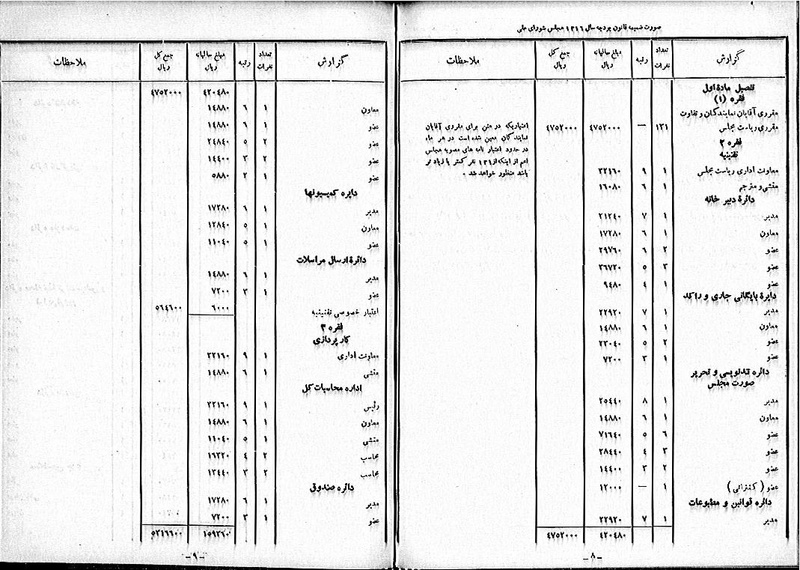 صورت ضمیمه قانون بودجه سال ۱۳۱۶ مجلس شورای ملی
گزارش | تعداد نفرات | رتبه | مبلغ سالیانه ریال | جمع کل ریال | ملاحظات
تفصیل مادهٔ اول
فقره (۱)
مقرری آقایان نمایندگان و تفاوت
مقرری ریاست مجلس | ۱۳۱ | — | ۴۷۵۲۰۰۰ | ۴۷۵۲۰۰۰
اعتباریکه در متن برای مقرری آقایان
نمایندگان معین شده است در هر ماه
در حدود اعتبار نامه های مصوبه مجلس
اعم از اینکه از ۱۳۱ نفر کمتر یا زیادتر
باشد منظور خواهد شد.
فقره ۲
تقنینیه
معاونت اداری ریاست مجلس | ۱ | ۹ | ۲۲۱۶۰
منشی و مترجم | ۱ | ۶ | ۱۶۰۸۰
دائرهٔ دبیر خانه
مدیر | ۱ | ۷ | ۲۱۲۴۰
معاون | ۱ | ۶ | ۱۷۲۸۰
عضو | ۲ | ۶ | ۲۹۷۶۰
عضو | ۳ | ۵ | ۳۶۷۲۰
عضو | ۱ | ۴ | ۹۴۸۰
دایرهٔ بایگانی جاری و راکد
مدیر | ۱ | ۷ | ۲۲۹۲۰
معاون | ۱ | ۶ | ۱۴۸۸۰
عضو | ۲ | ۵ | ۲۳۰۴۰
عضو | ۱ | ۳ | ۷۲۰۰
دائره تندنویسی و تحریر
صورت مجلس
مدیر | ۱ | ۸ | ۲۵۴۴۰
معاون | ۱ | ۶ | ۱۴۸۸۰
عضو | ۶ | ۵ | ۷۱۶۴۰
عضو | ۳ | ۴ | ۲۸۴۴۰
عضو | ۲ | ۳ | ۱۴۴۰۰
عضو (کنتراتی) | ۱ | — | ۱۲۰۰۰
دائره قوانین و مطبوعات
مدیر | ۱ | ۷ | ۲۲۹۲۰
۴۲۰۴۸۰ | ۴۷۵۲۰۰۰
-۸-
گزارش | تعداد نفرات | رتبه | مبلغ سالیانه ریال | جمع کل ریال | ملاحظات
۴۲۰۴۸۰ | ۴۷۵۲۰۰۰
معاون | ۱ | ۶ | ۱۴۸۸۰
عضو | ۱ | ۶ | ۱۴۸۸۰
عضو | ۲ | ۵ | ۲۴۸۴۰
عضو | ۲ | ۳ | ۱۴۴۰۰
عضو | ۱ | ۲ | ۵۸۸۰
دایره کمیسیونها
مدیر | ۱ | ۶ | ۱۷۲۸۰
معاون | ۱ | ۵ | ۱۲۸۴۰
عضو | ۱ | ۵ | ۱۱۰۴۰
دائرهٔ ارسال مراسلات
مدیر | ۱ | ۶ | ۱۴۸۸۰
عضو | ۱ | ۳ | ۷۲۰۰
اعتبار خصوصی تقنینیه | ۶۰۰۰ | ۵۶۴۶۰۰
فقره ۳
کارپردازی
معاونت اداری | ۱ | ۹ | ۲۲۱۶۰
منشی | ۱ | ۶ | ۱۴۸۸۰
اداره محاسبات کل
رئیس | ۱ | ۹ | ۲۲۱۶۰
معاون | ۱ | ۶ | ۱۴۸۸۰
منشی | ۱ | ۵ | ۱۱۰۴۰
محاسب | ۲ | ۴ | ۱۶۳۲۰
محاسب | ۲ | ۳ | ۱۳۴۴۰
دائره صندوق
مدیر | ۱ | ۶ | ۱۷۲۸۰
عضو | ۱ | ۳ | ۷۲۰۰
۱۵۹۳۶۰ | ۵۳۱۶۶۰۰
-۹-